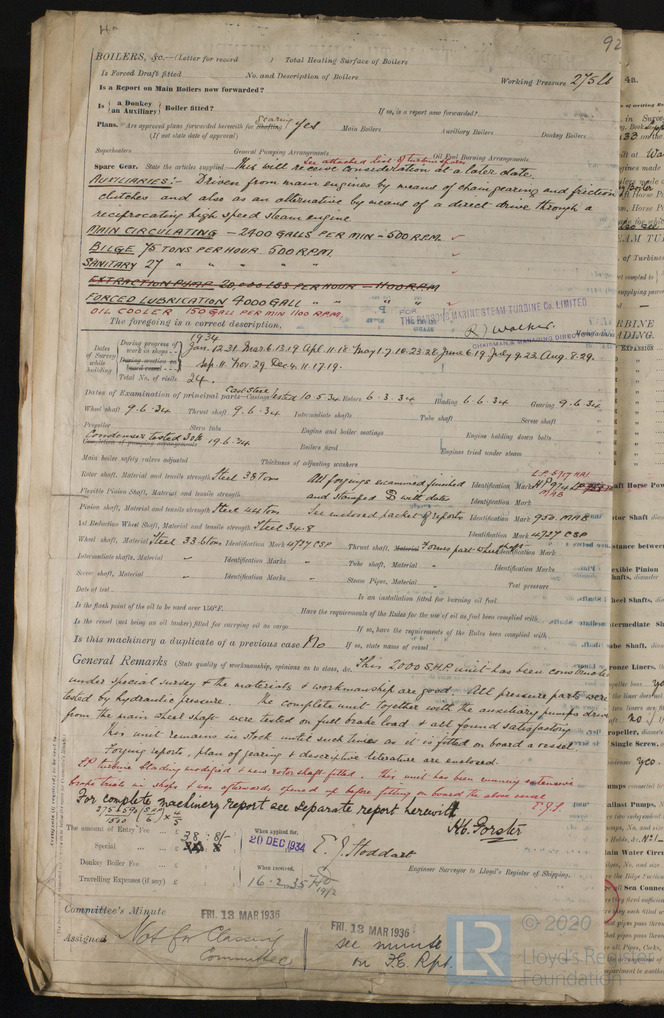 92
BOILERS, &c.—(Letter for record ) Total Heating Surface of Boilers
Is Forced Draft fitted No. and Description of Boilers Working Pressure 275 lb
Is a Report on Main Boilers now forwarded?
Is {a Donkey / an Auxiliary} Boiler fitted? If so, is a report now forwarded?
Plans. Are approved plans forwarded herewith for Shafting gearing Yes Main Boilers Auxiliary Boilers Donkey Boilers
(If not state date of approval)
Superheaters General Pumping Arrangements Oil Fuel Burning Arrangements
See attached list of turbine spares
Spare Gear. State the articles supplied:— This will receive consideration at a later date.
AUXILIARIES:- Driven from main engines by means of chain gearing and friction
clutches and also as an alternative by means of a direct drive through a
reciprocating high speed steam engine
MAIN CIRCULATING — 2400 GALLS PER MIN — 500 RPM
BILGE 75 TONS PER HOUR 500 RPM
SANITARY 27 " " " "
EXTRACTION PUMP 20,000 LBS PER HOUR — 1100 RPM
FORCED LUBRICATION 4000 GALL " " "
OIL COOLER 150 GALL PER MIN 1100 RPM
FOR
THE PARSONS MARINE STEAM TURBINE CO. LIMITED
The foregoing is a correct description, R J Walker
CHAIRMAN & MANAGING DIRECTOR
Manufacturer
Dates of Survey while building
During progress of work in shops - - 1934 Jan. 12.31. Mar. 6.13.19 Apl. 11.18 May 1.7.16.23.28 June 6.19 July 9.23. Aug. 8.29.
Sep. 11. Nov. 29. Dec. 4.11.17.19.
Total No. of visits 24.
Dates of Examination of principal parts—Casings Cast Steel tested 10.5.34 Rotors 6.3.34 Blading 6.6.34 Gearing 9.6.34
Wheel shaft 9.6.34 Thrust shaft 9.6.34 Intermediate shafts Tube shaft Screw shaft
Propeller Stern tube Engine and boiler seatings Engine holding down bolts
Condenser tested 30 lb 19.6.34 Boilers fixed Engines tried under steam
Completion of pumping arrangements
Main boiler safety valves adjusted Thickness of adjusting washers
Rotor shaft, Material and tensile strength Steel 38 Tons All forgings examined finished Identification Mark
Flexible Pinion Shaft, Material and tensile strength and stamped D with dates Identification Mark
Pinion shaft, Material and tensile strength Steel 44 tons See enclosed packet of reports Identification Mark 950. MAB
1st Reduction Wheel Shaft, Material and tensile strength Steel 34.8 Identification Mark 4727 CSP
Wheel shaft, Material Steel 33.6 tons Identification Mark 4727 CSP Thrust shaft, Material Forms part wheel shaft Identification Mark
Intermediate shafts, Material " Identification Marks " Tube shaft, Material " Identification Marks
Screw shaft, Material " Identification Marks " Steam Pipes, Material " Test pressure
Date of test Is an installation fitted for burning oil fuel
Is the flash point of the oil to be used over 150°F. Have the requirements of the Rules for the use of oil as fuel been complied with
Is the vessel (not being an oil tanker) fitted for carrying oil as cargo If so, have the requirements of the Rules been complied with
Is this machinery a duplicate of a previous case No If so, state name of vessel
General Remarks (State quality of workmanship, opinions as to class, &c. This 2000 SHP unit has been constructed
under special survey & the materials & workmanship are good. All pressure parts were
tested by hydraulic pressure. The complete unit together with the auxiliary pumps driven
from the main wheel shaft were tested on fuel brake load & all found satisfactory
This unit remains in stock until such times as it is fitted on board a vessel.
Forging reports, plan of gearing & descriptive literature are enclosed.
LP turbine blading modified & new rotor shaft fitted. This unit has been running extensive
brake trials in shops & was afterwards opened up before fitting on board the above vessel
For complete machinery report see separate report herewith
H.C. Forster
The amount of Entry Fee .. £ 38 : 8/-
Special .. £
Donkey Boiler Fee .. £
Travelling Expenses (if any) £
When applied for, 20 DEC 1934
When received, 16.2.35
E. J. Stoddart
Engineer Surveyor to Lloyd's Register of Shipping.
Committee's Minute FRI. 13 MAR 1936 FRI. 13 MAR 1936
Assigned Not for Classing Committee
see minute
on F.E. Rpt.
LR
© 2020
Lloyd's Register
Foundation